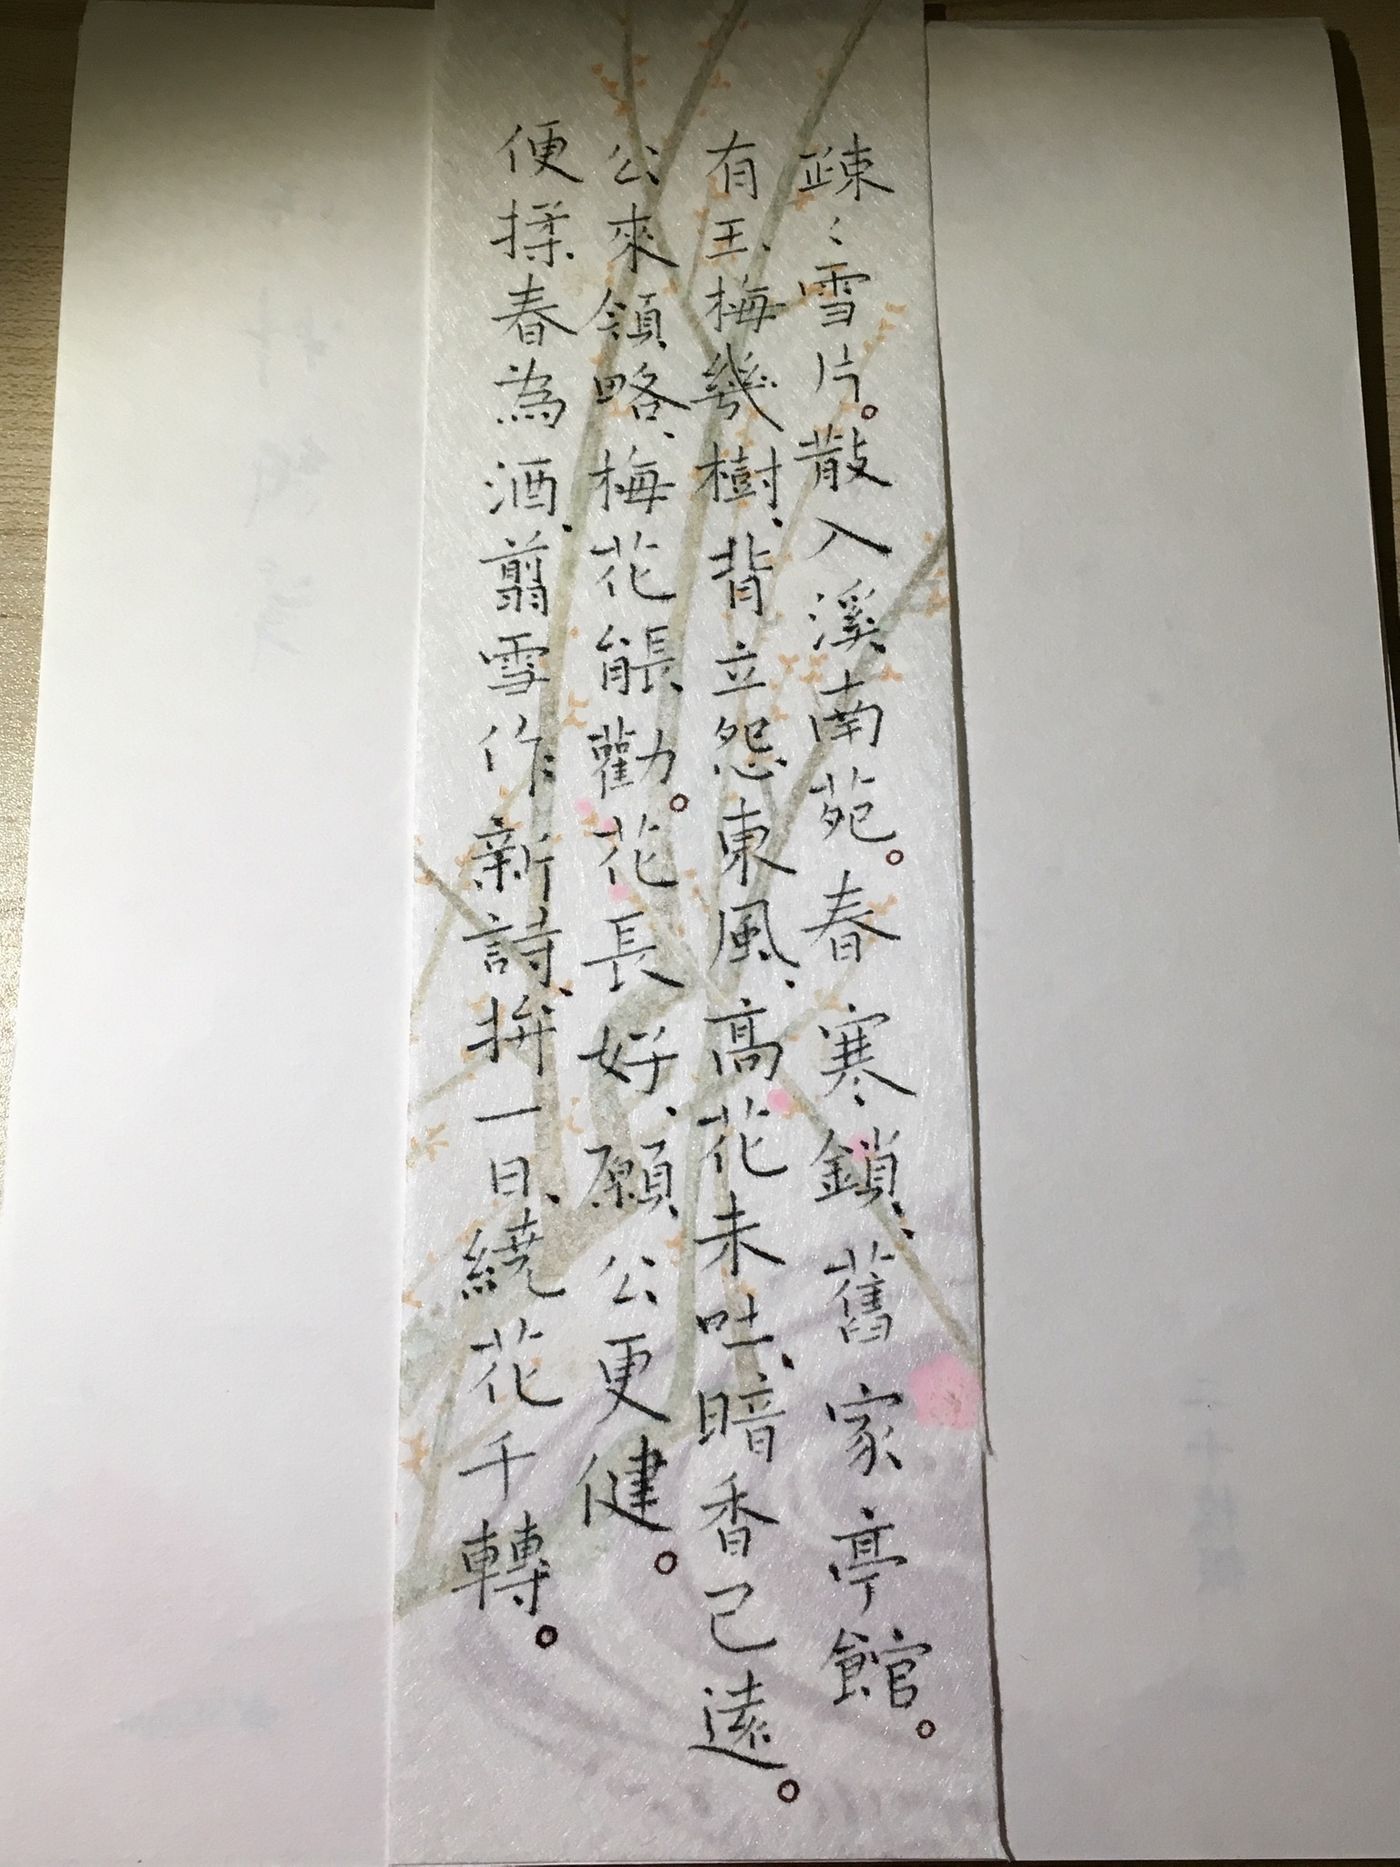 疎〻雪片。散入溪南苑。春寒鎖、舊家亭館。
有玉梅幾樹、背立怨東風、高花未吐、暗香已遠。
公來領略、梅花能勸。花長好、願公更健。
便揉春為酒、翦雪作新詩、拚一日、繞花千轉。